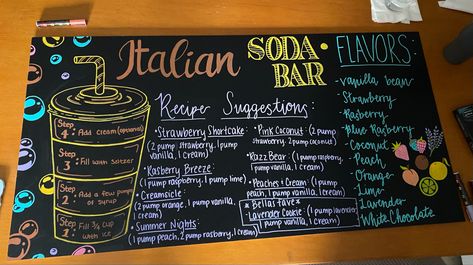 Italian
SODA
BAR
FLAVORS:
Recipe Suggestions:
Step 4: Add Cream (optional)
Step 3: Fill with Seltzer
Step 2: Add a few pumps
of syrup
Step 1: Fill 3/4 Cup
with ice
• Strawberry Shortcake:
(2 pump strawberry, 1 pump
vanilla, 1 cream)
• Rasberry Breeze
(1 pump raspberry, 1 pump lime)
• Creamsicle:
(2 pump orange, 1 pump vanilla, 1
cream)
• Summer Nights:
(1 pump peach, 2 pump rasberry, 1 cream)
• Pink Coconut: (2 pump
strawberry, 2 pump coconut)
• Razz Bear: (1 pump raspberry,
1 pump vanilla, 1 cream)
• Peaches & Cream: (1 pump
peach, 1 pump vanilla, 1 cream)
* Bellas Fave *
Lavender Cookie: (1 pump lavender,
1 pump vanilla, 1 cream)
-vanilla bean
-Strawberry
-Rasberry
-Blue Rasberry
-Coconut
-Peach
-Orange
-Lime
-Lavender
-White Chocolate